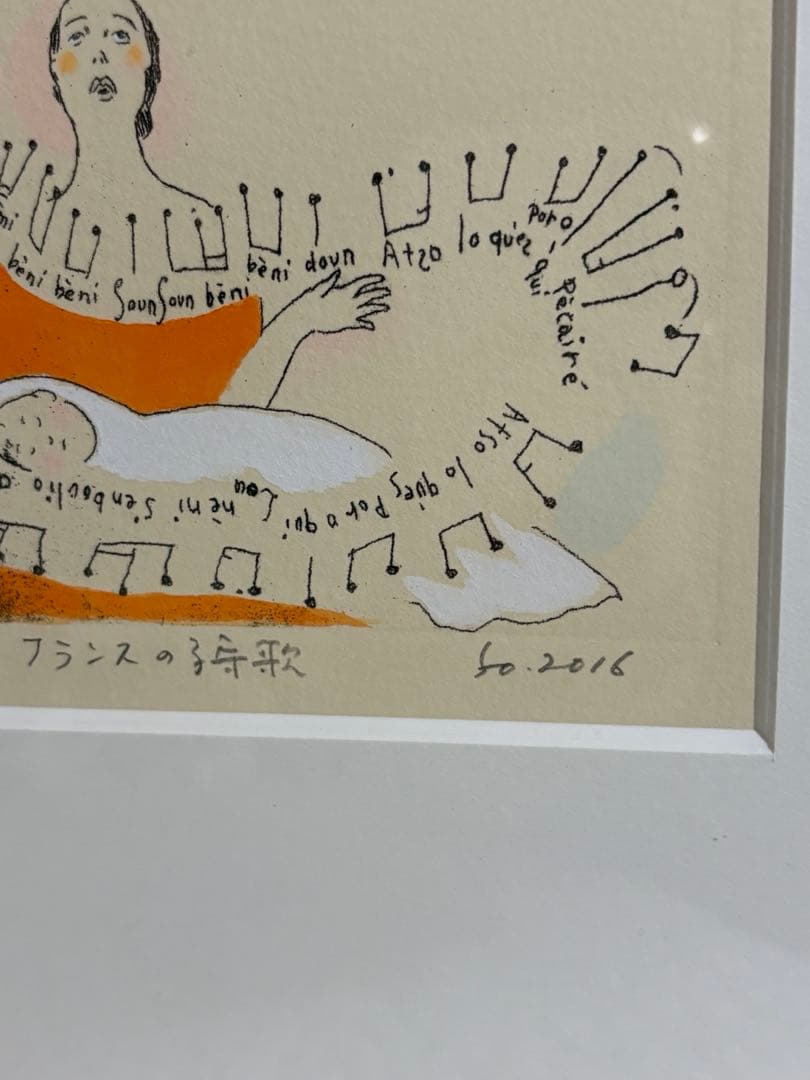 bèni bèni SounSoun bèni bèni doun Atzo lo quèz poro qui Pècairé
Atso lo quès poro qui Lou nèni s'enboulio
フランスの子守歌
So.2016